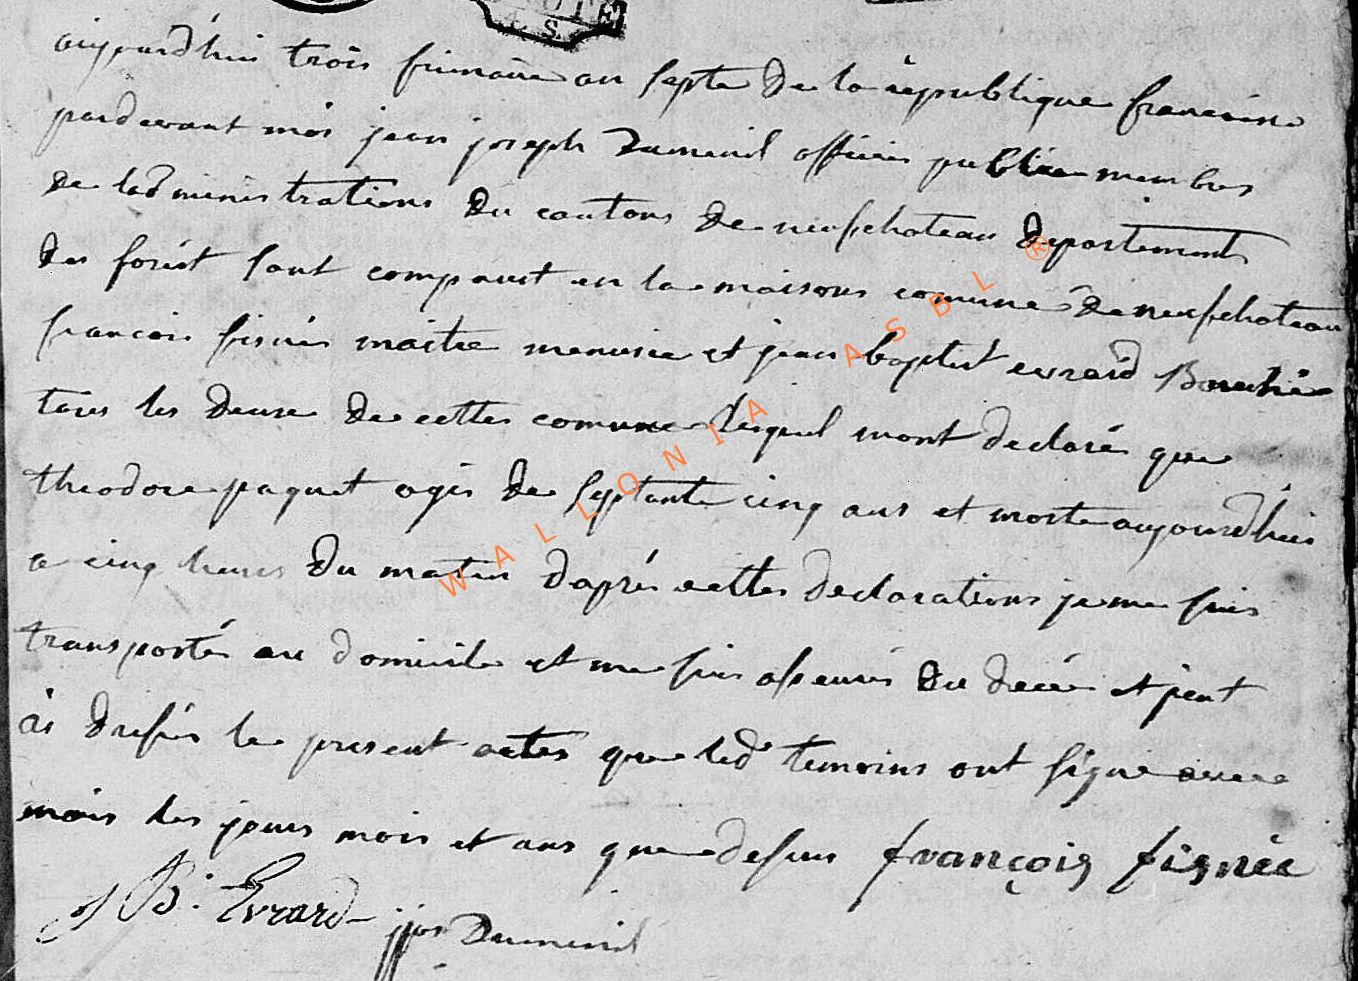 aujourd'hui trois frimaire an septe de la république francoise
pardevant moi jean joseph Dumenil officier publice membres
de ladministrations du cantons de neufchateau departements
des forêt sont comparut en la maisons comune de neufchateau
francois fisnée maitre menusie et jean baptist evrard Bouchée
tous les deuse de cettes comune lesquel mont declaré que
theodore paquet agés de septante cinq ans et morte aujourdhui
a cinq heures du matin daprés cettes declarations je me suis
transporté au domicile et me suis assurés du decée et jent
ai dressés le present actes que led temoins ont signe avece
mois les jours mois et ans que desus françois fisnée
J B. Evrard jjos Dumenil
WALLONIA ASBL ®